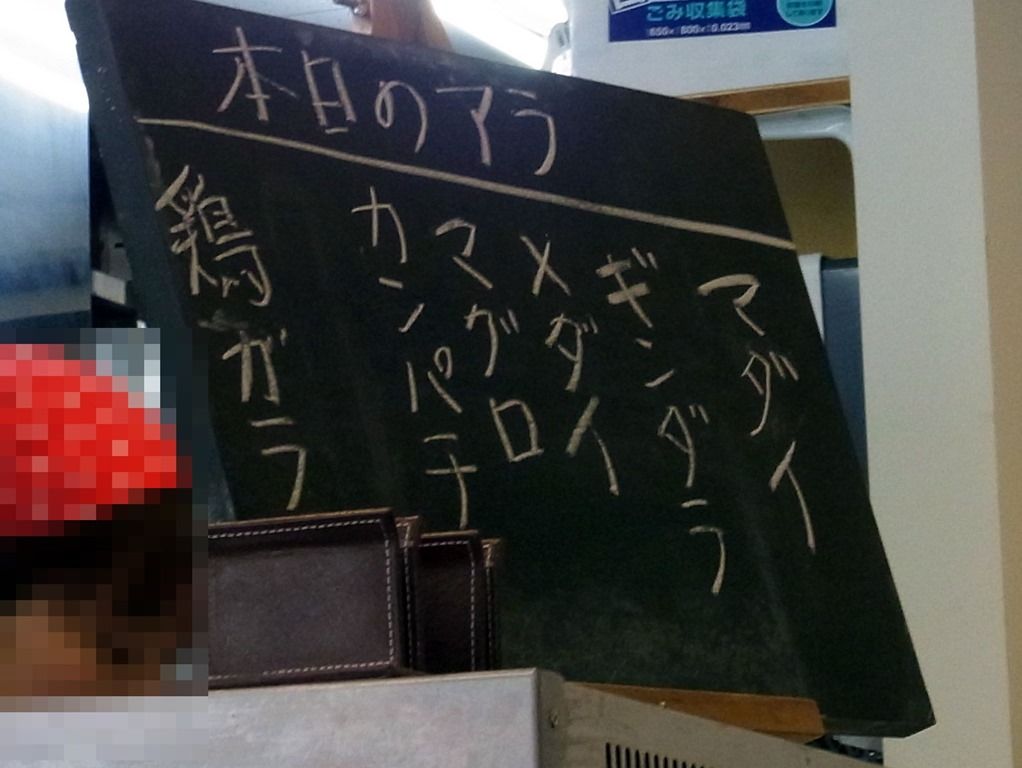 ごみ収集袋
650×800×0.023mm
本日のアラ
マダイ
ギンダラ
メダイ
マグロ
カンパチ
鶏ガラ